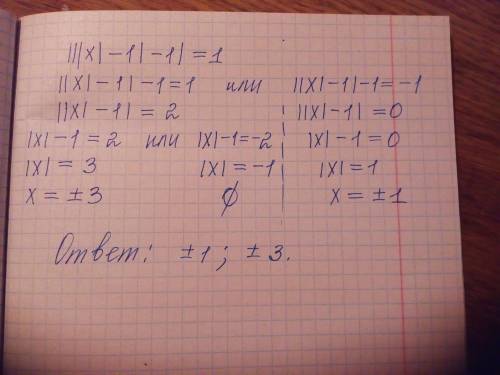 |||x|-1|-1|=1
||x|-1|-1=1 или ||x|-1|-1=-1
||x|-1|=2 ||x|-1|=0
|x|-1=2 или |x|-1=-2 |x|-1=0
|x|=3 |x|=-1 |x|=1
x=±3 ∅ x=±1
Ответ: ±1; ±3.